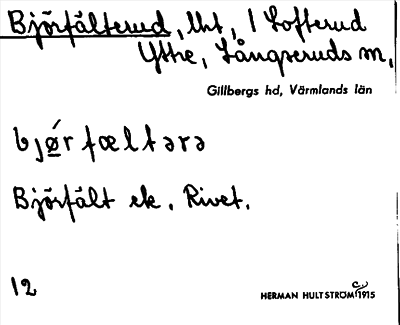 Björfälterud, lht, 1 Lofterud
Ytre, Långseruds sn,
Gillbergs hd, Värmlands län
bjǿr fæltərə
Björfält ek. Rivet.
12
HERMAN HULTSTRÖM 1915